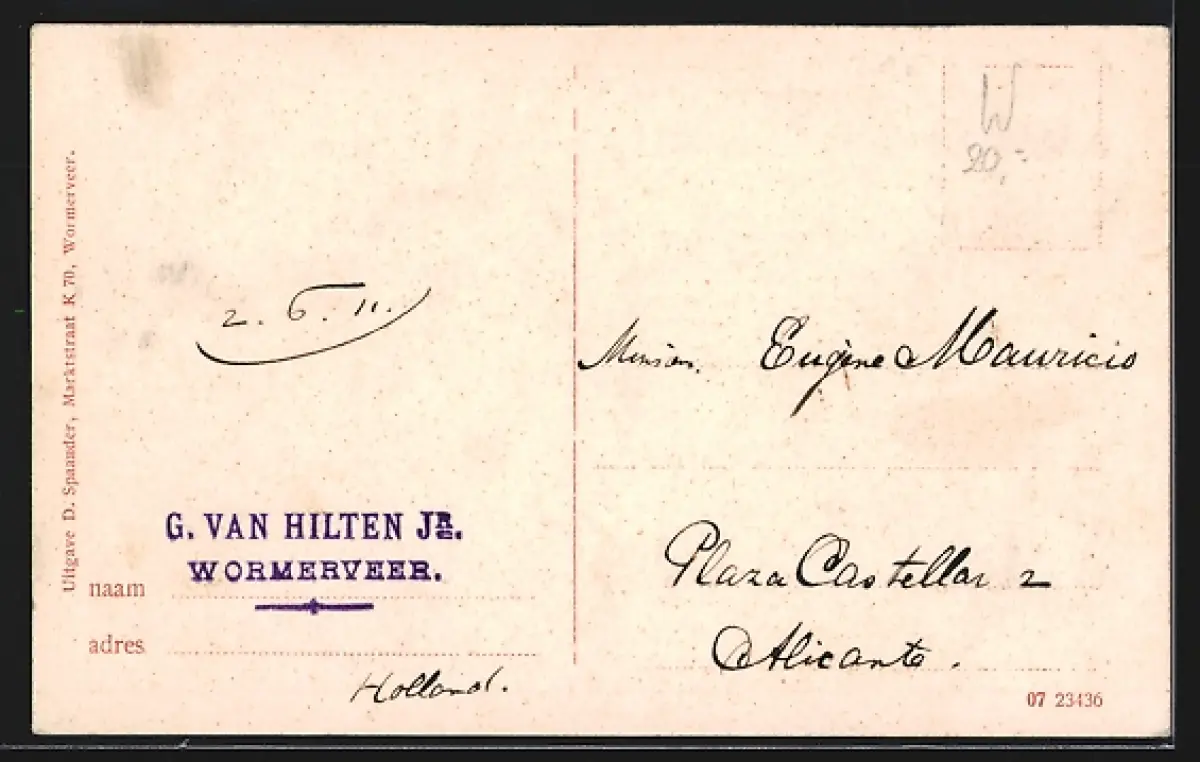 Uitgave D. Spaander, Marktstraat K 70, Wormerveer.
2. 6. 11.
G. VAN HILTEN JR.
WORMERVEER.
naam
adres
Holland.
W
20,-
Eugène Mauricio
Plaza Castellar 2
Alicante.
07 23436